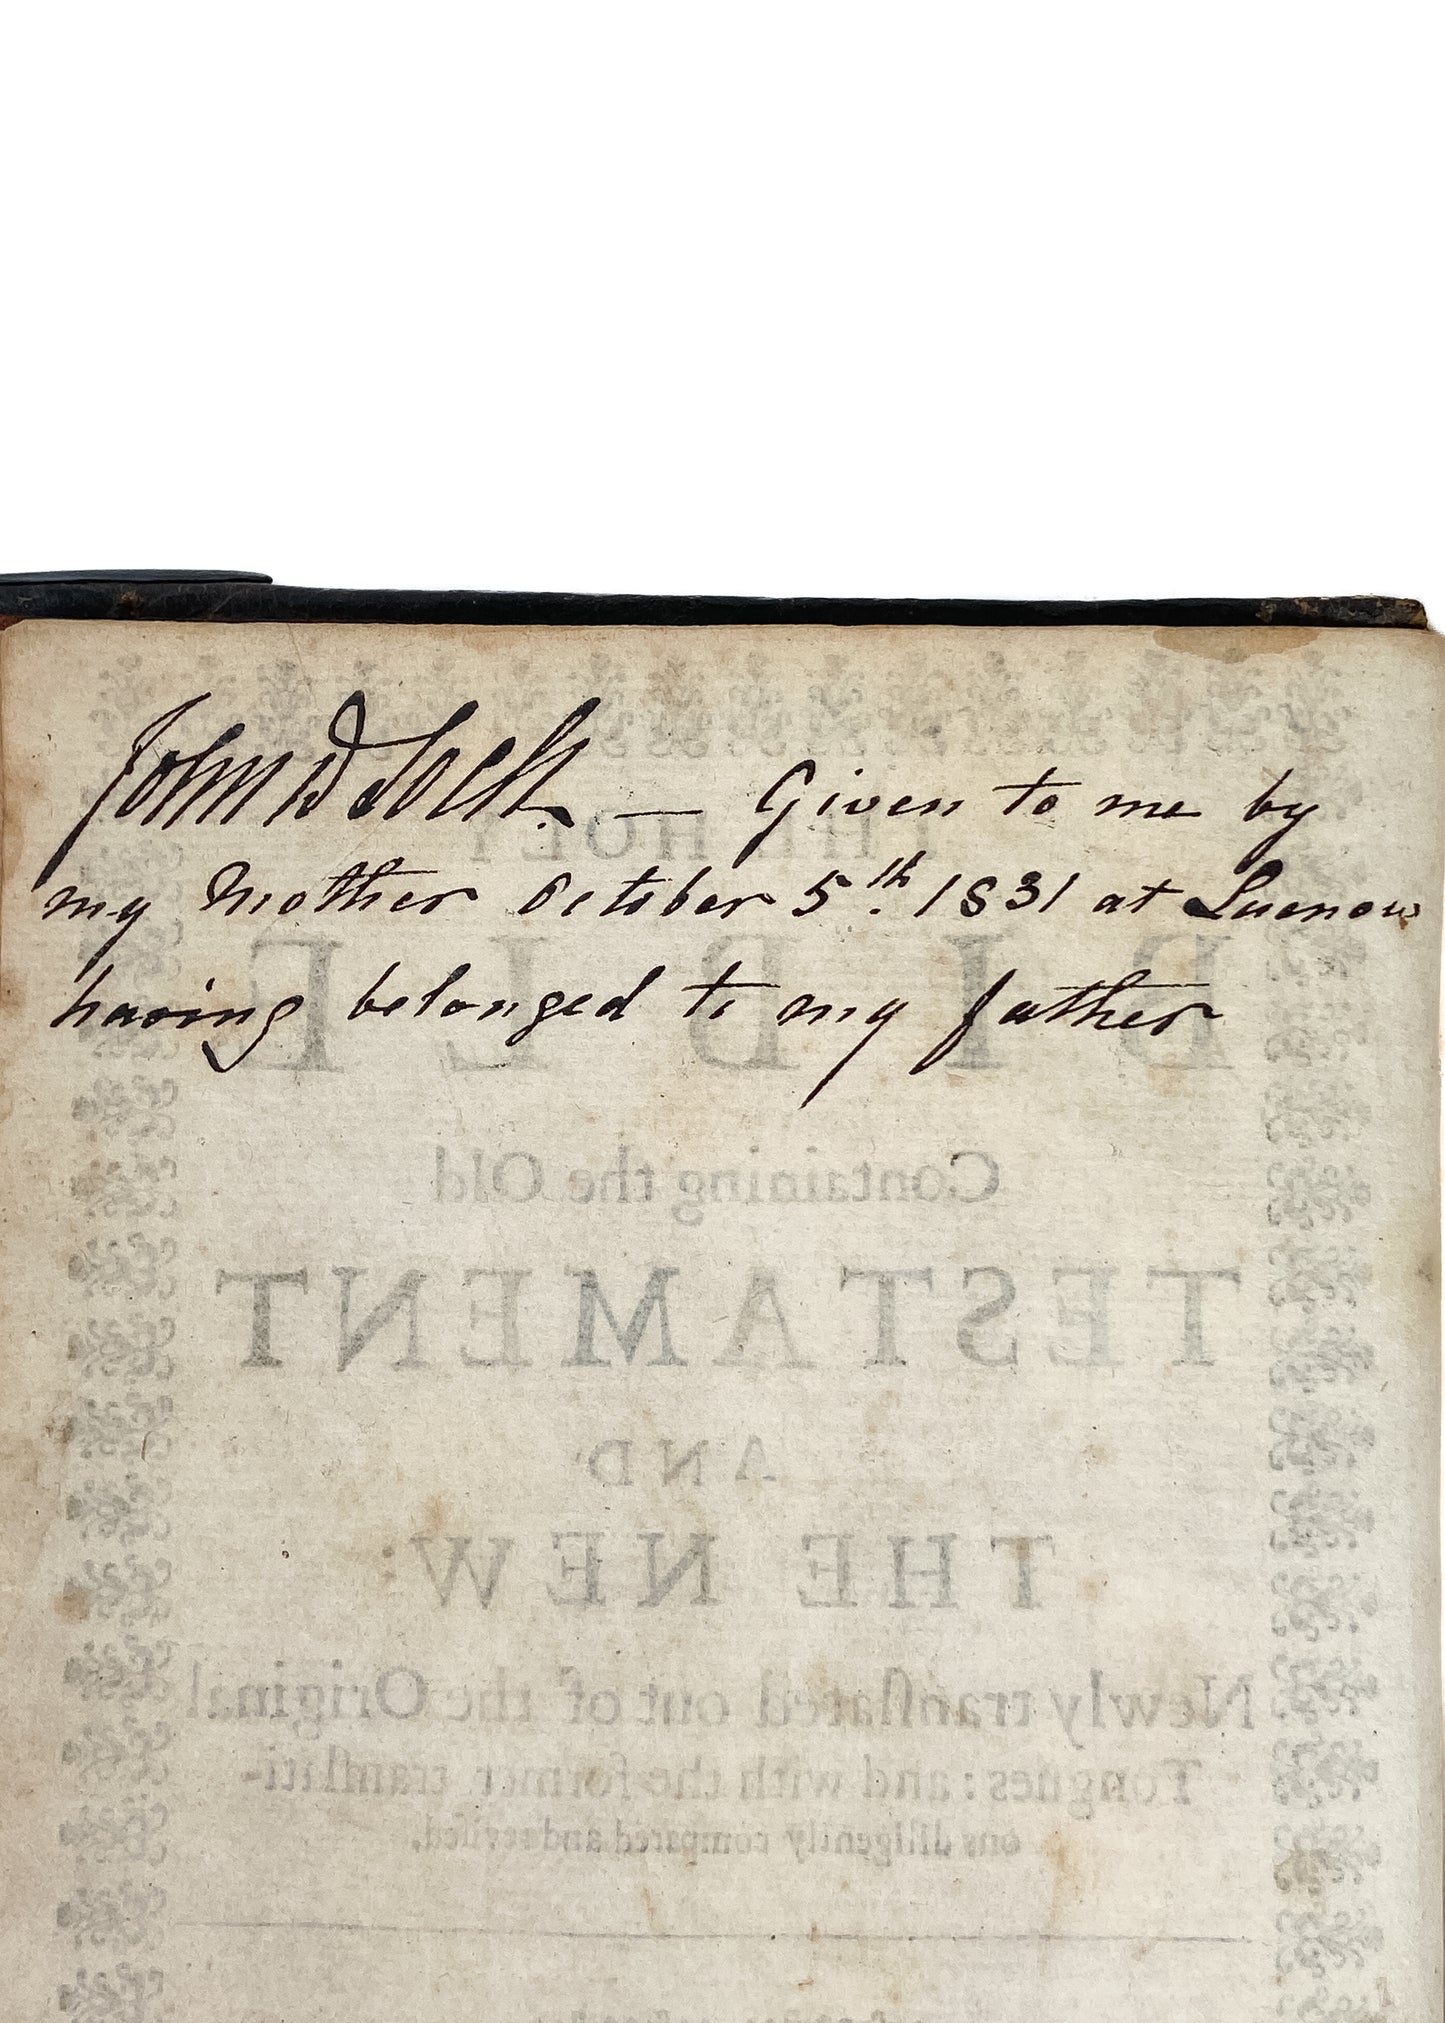 John D Loch. — Given to me by
my Mother October 5th. 1831 at Lucnow
having belonged to my father
THE HOLY
BIBLE
Containing the Old
TESTAMENT
AND
THE NEW:
Newly tranſlated out of the Original
Tongues: and with the former tranſlati-
ons diligently compared and reviſed.